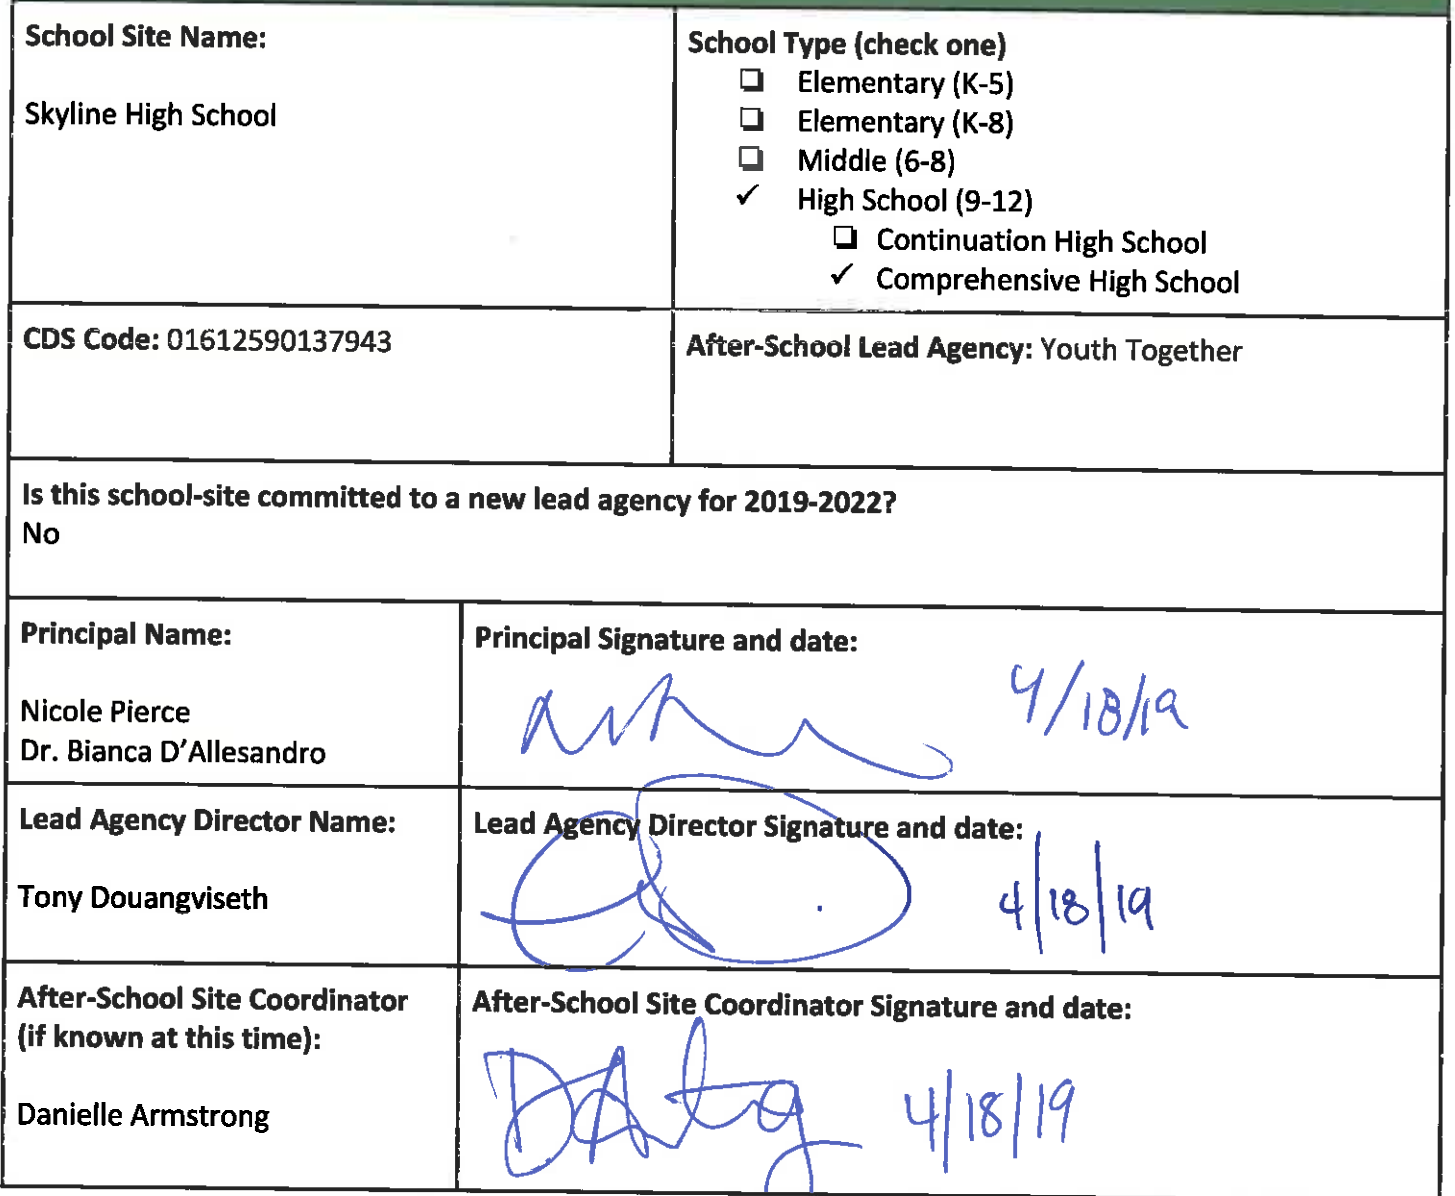 School Site Name:
Skyline High School
School Type (check one)
❏ Elementary (K-5)
❏ Elementary (K-8)
❏ Middle (6-8)
✓ High School (9-12)
❏ Continuation High School
✓ Comprehensive High School
CDS Code: 01612590137943
After-School Lead Agency: Youth Together
Is this school-site committed to a new lead agency for 2019-2022?
No
Principal Name:
Nicole Pierce
Dr. Bianca D'Allesandro
Principal Signature and date:
4/18/19
Lead Agency Director Name:
Tony Douangviseth
Lead Agency Director Signature and date:
4/18/19
After-School Site Coordinator
(if known at this time):
Danielle Armstrong
After-School Site Coordinator Signature and date:
4/18/19